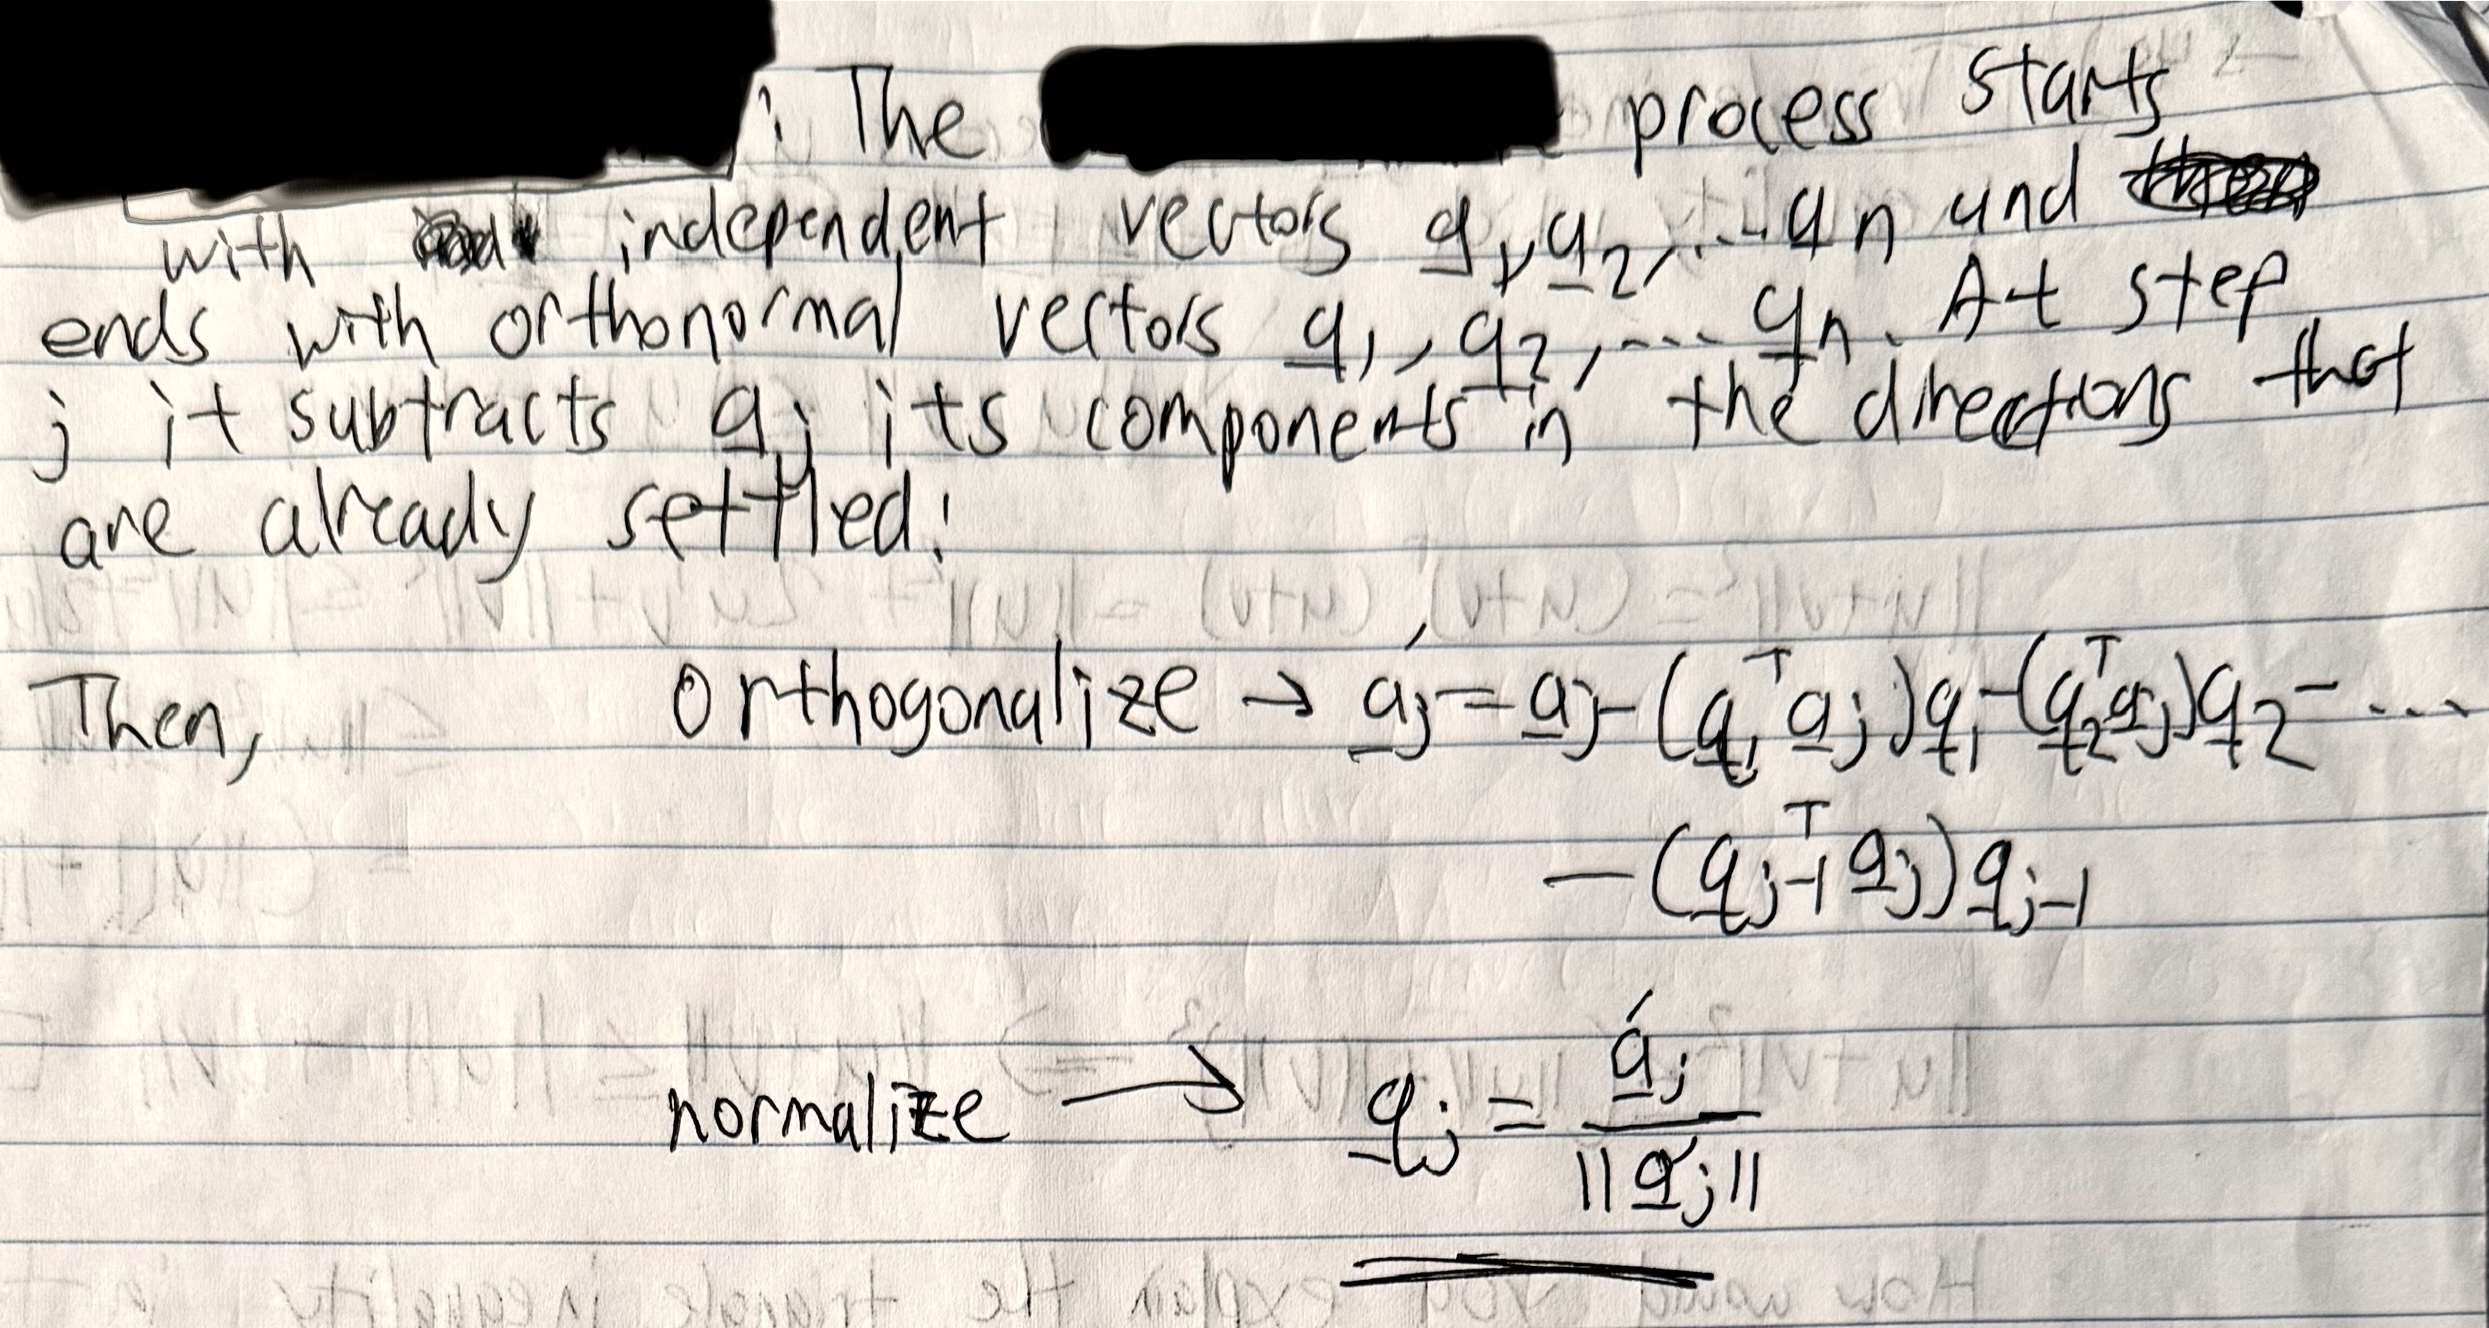 : The process starts
with independent vectors a̲₁, a̲₂, ... a̲n and
ends with orthonormal vectors q̲₁, q̲₂, ... q̲n. At step
j it subtracts a̲j its components in the directions that
are already settled:
Then, orthogonalize → a̲j′ = a̲j - (q̲₁ᵀ a̲j) q̲₁ - (q̲₂ᵀ a̲j) q̲₂ - ...
- (q̲j-1ᵀ a̲j) q̲j-1
normalize → q̲j = a̲j′ / ||a̲j′||